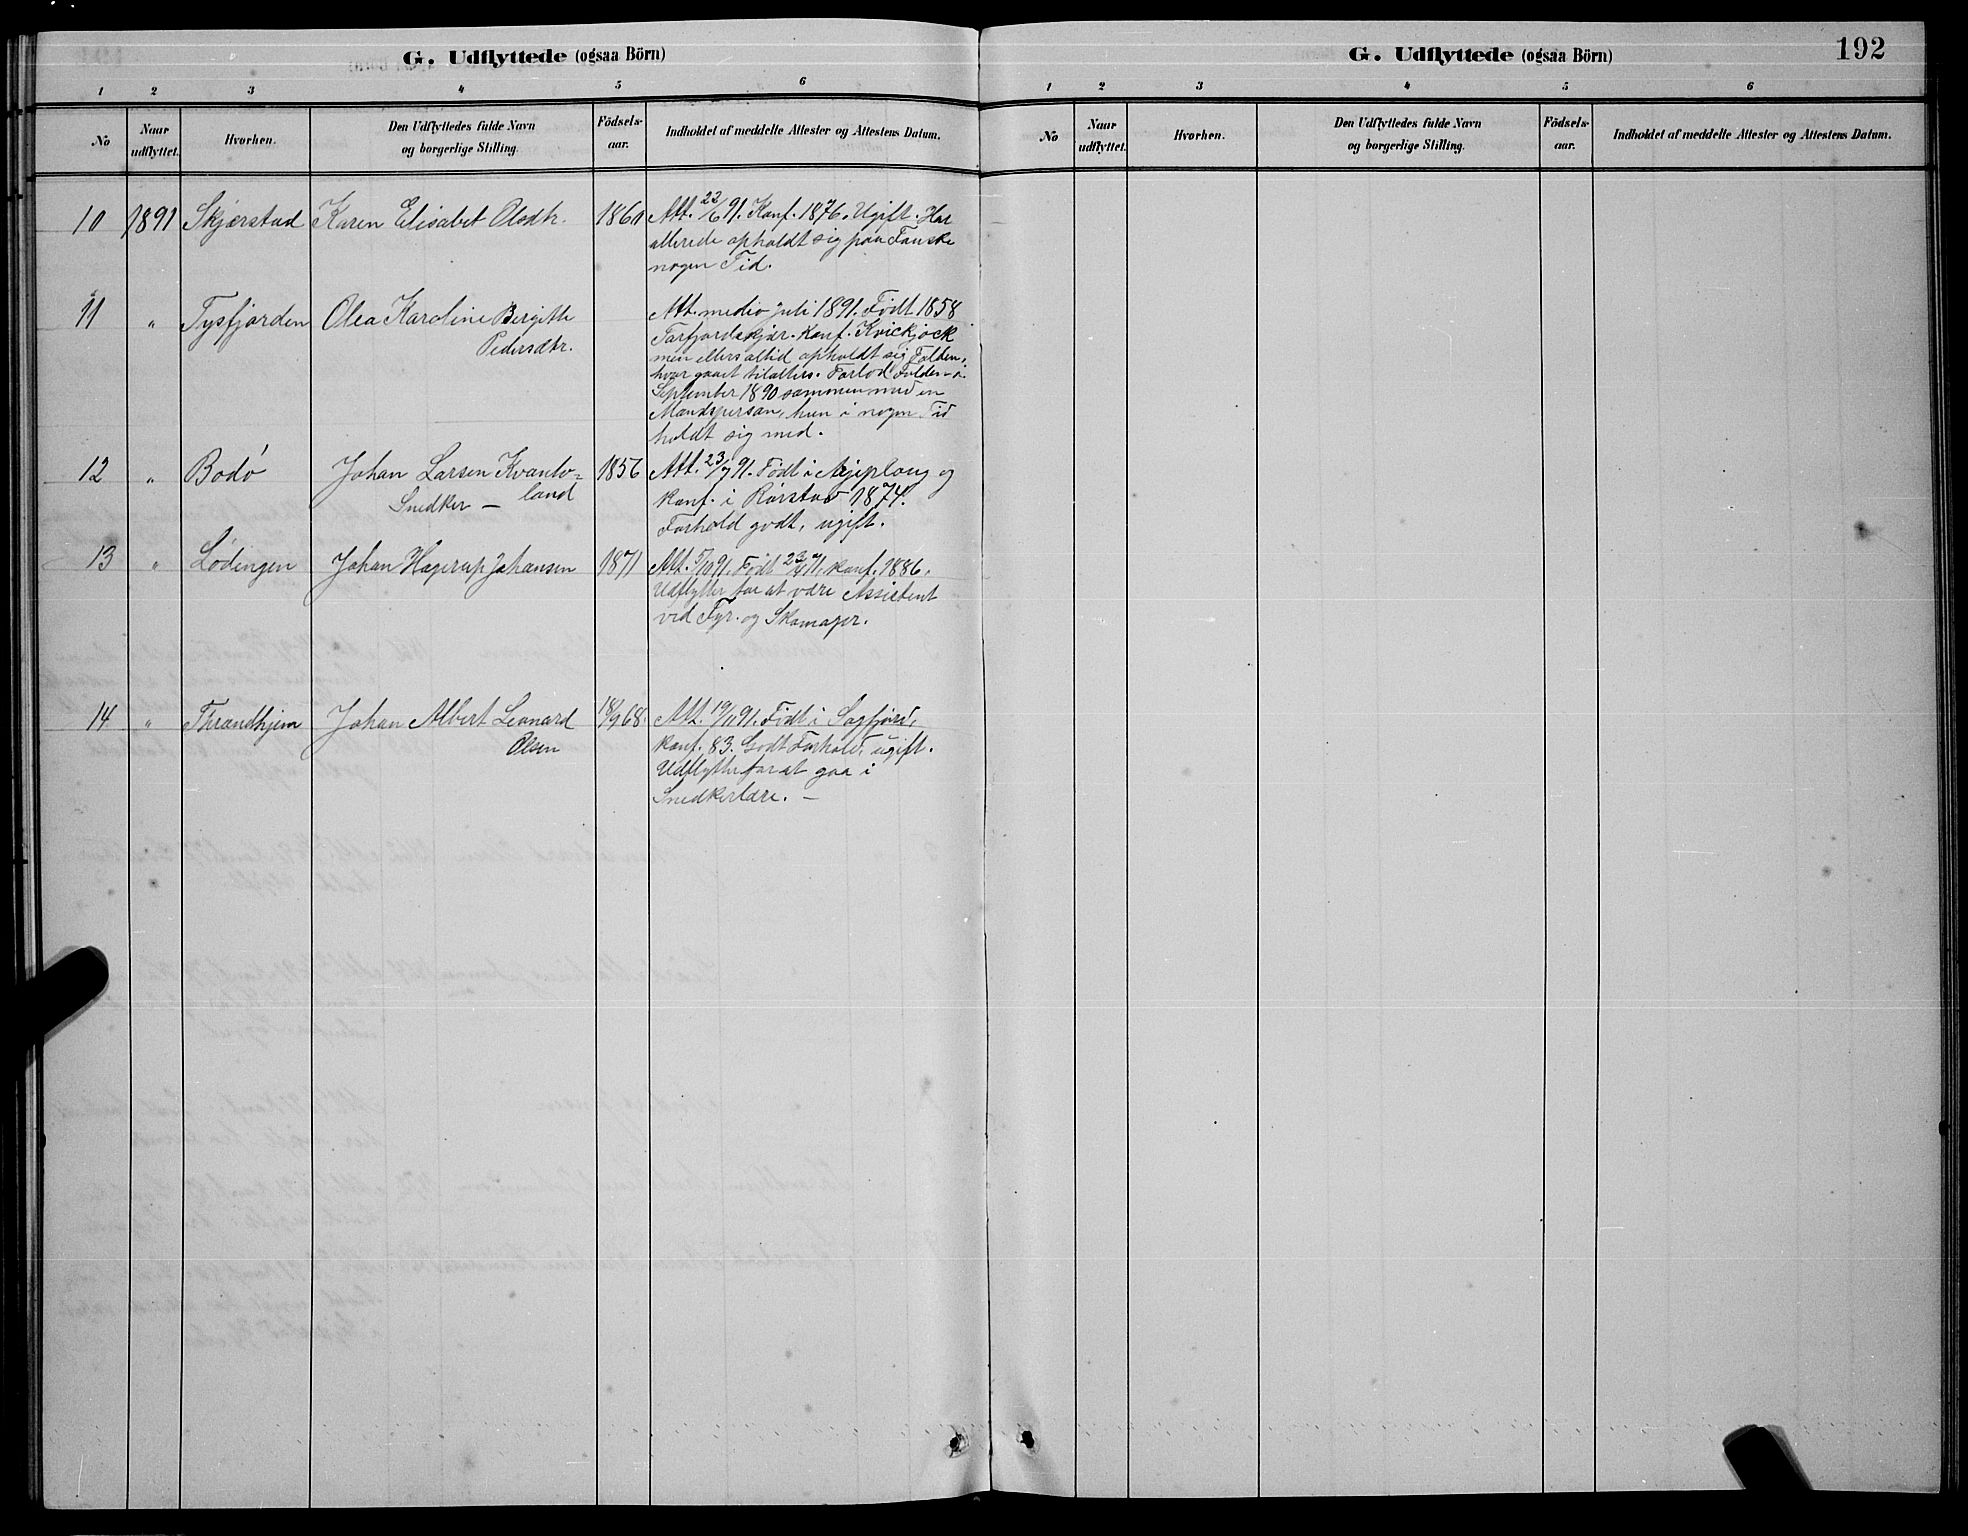 G. Udflyttede (ogsaa Börn)
1 2 3 4 5 6
No Naar udflyttet. Hvorhen. Den Udflyttedes fulde Navn og borgerlige Stilling. Födsels-aar. Indholdet af meddelte Attester og Attestens Datum.
10 1891 Skjærstad Karen Elisabet Olsdtr. 1860 Att. 22/6 91. Konf. 1876. Ugift. Har
allerede opholdt sig paa Fauske
nogen Tid.
11 " Tysfjorden Olea Karoline Bergitte Att. medio juli 1891. Födt 1858
Pedersdtr. Konf. Kvickjock
men ellers altid opholdt sig Folden,
hvor gaaet tilalters. Forlod Folden i
September 1890 sammen med en
Mandsperson, hun i nogen Tid
holdt sig med.
12 " Bodö Johan Larsen Kvanto- 1856 Att. 23/7 91. Födt i Arjeploug og
land konf. i Rörstad 1874.
Snedker — Forhold godt, ugift.
13 " Lödingen Johan Hagerup Johansen 1871 Att. 5/10 91. Födt 23/4 71, konf. 1886.
Udflytter for at være Assistent
ved Fyr- og
14 " Throndhjem Johan Albert Leonard 18/9 68. Att. 19/11 91. Födt i Sagfjord,
Olsen konf. 83. Godt Forhold, ugift.
Udflytter for at gaa i
Snedkerlære. —
G. Udflyttede (ogsaa Börn) 192
1 2 3 4 5 6
No Naar udflyttet. Hvorhen. Den Udflyttedes fulde Navn og borgerlige Stilling. Födsels-aar. Indholdet af meddelte Attester og Attestens Datum.